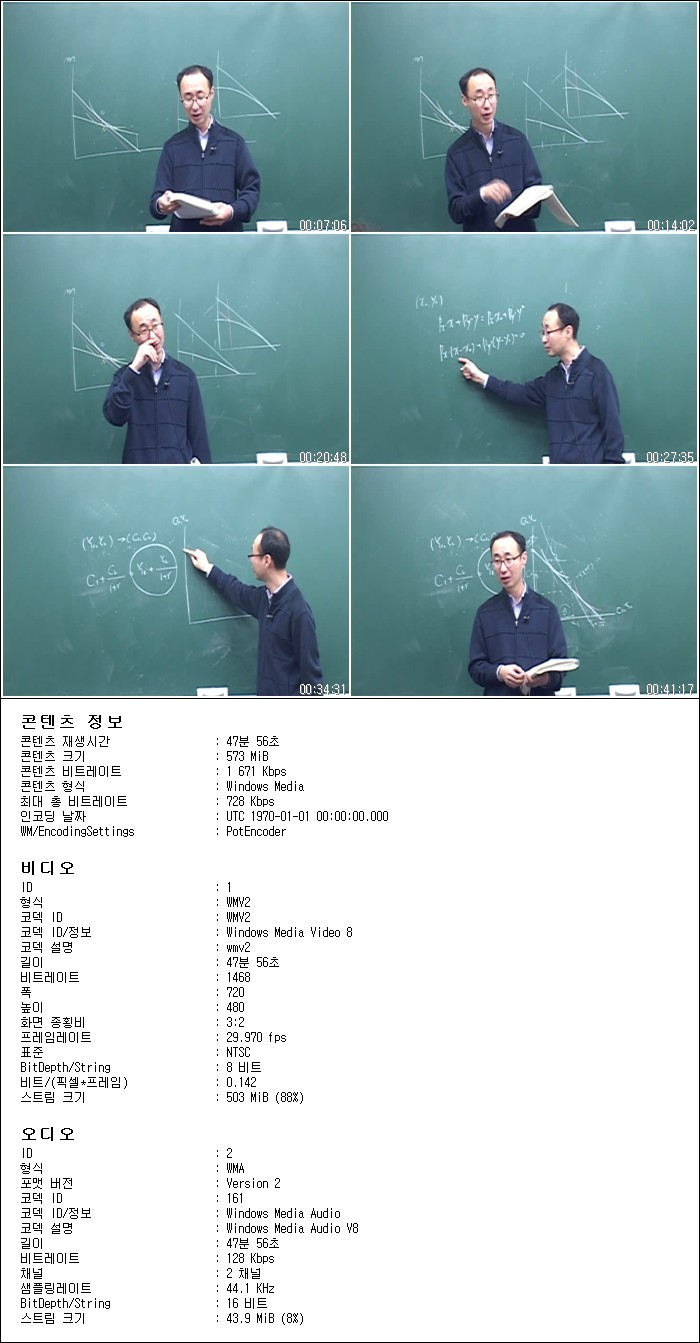 00:07:06
00:14:02
00:20:48
(x₀, y₀)
00:27:35
00:34:31
00:41:17
콘텐츠 정보
콘텐츠 재생시간 : 47분 56초
콘텐츠 크기 : 573 MiB
콘텐츠 비트레이트 : 1 671 Kbps
콘텐츠 형식 : Windows Media
최대 총 비트레이트 : 728 Kbps
인코딩 날짜 : UTC 1970-01-01 00:00:00.000
WM/EncodingSettings : PotEncoder
비디오
ID : 1
형식 : WMV2
코덱 ID : WMV2
코덱 ID/정보 : Windows Media Video 8
코덱 설명 : wmv2
길이 : 47분 56초
비트레이트 : 1468
폭 : 720
높이 : 480
화면 종횡비 : 3:2
프레임레이트 : 29.970 fps
표준 : NTSC
BitDepth/String : 8 비트
비트/(픽셀*프레임) : 0.142
스트림 크기 : 503 MiB (88%)
오디오
ID : 2
형식 : WMA
포맷 버전 : Version 2
코덱 ID : 161
코덱 ID/정보 : Windows Media Audio
코덱 설명 : Windows Media Audio V8
길이 : 47분 56초
비트레이트 : 128 Kbps
채널 : 2 채널
샘플링레이트 : 44.1 KHz
BitDepth/String : 16 비트
스트림 크기 : 43.9 MiB (8%)